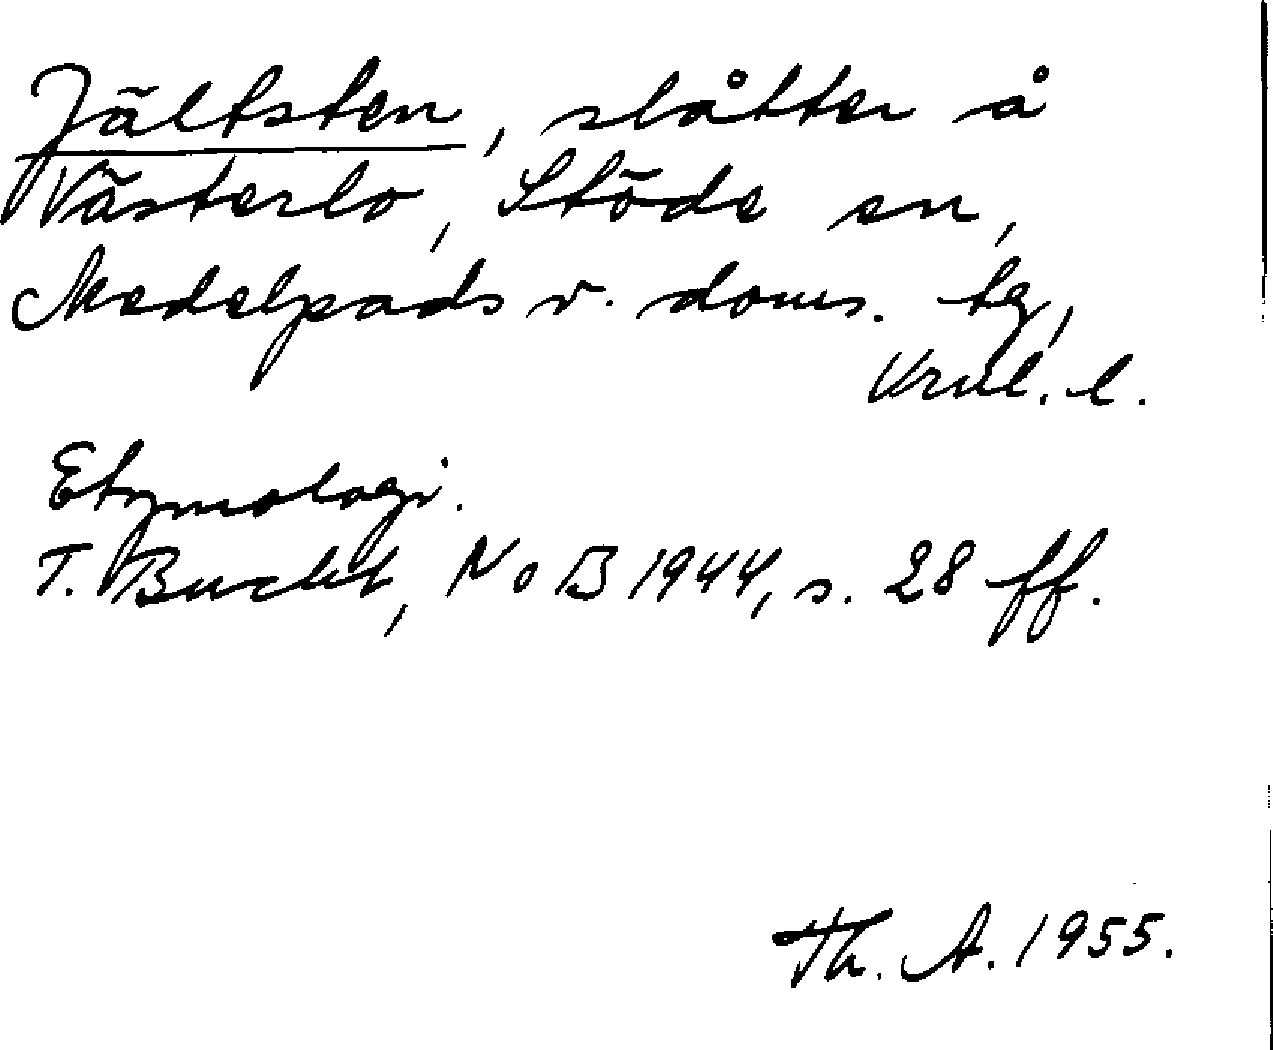 Jältsten, slåtter å
Västerlo, Stöde sn,
Medelpads v. doms. tg,
Vrnl. l.
Etymologi.
T. Bucht, NoB 1944, s. 28 ff.
Th. A. 1955.